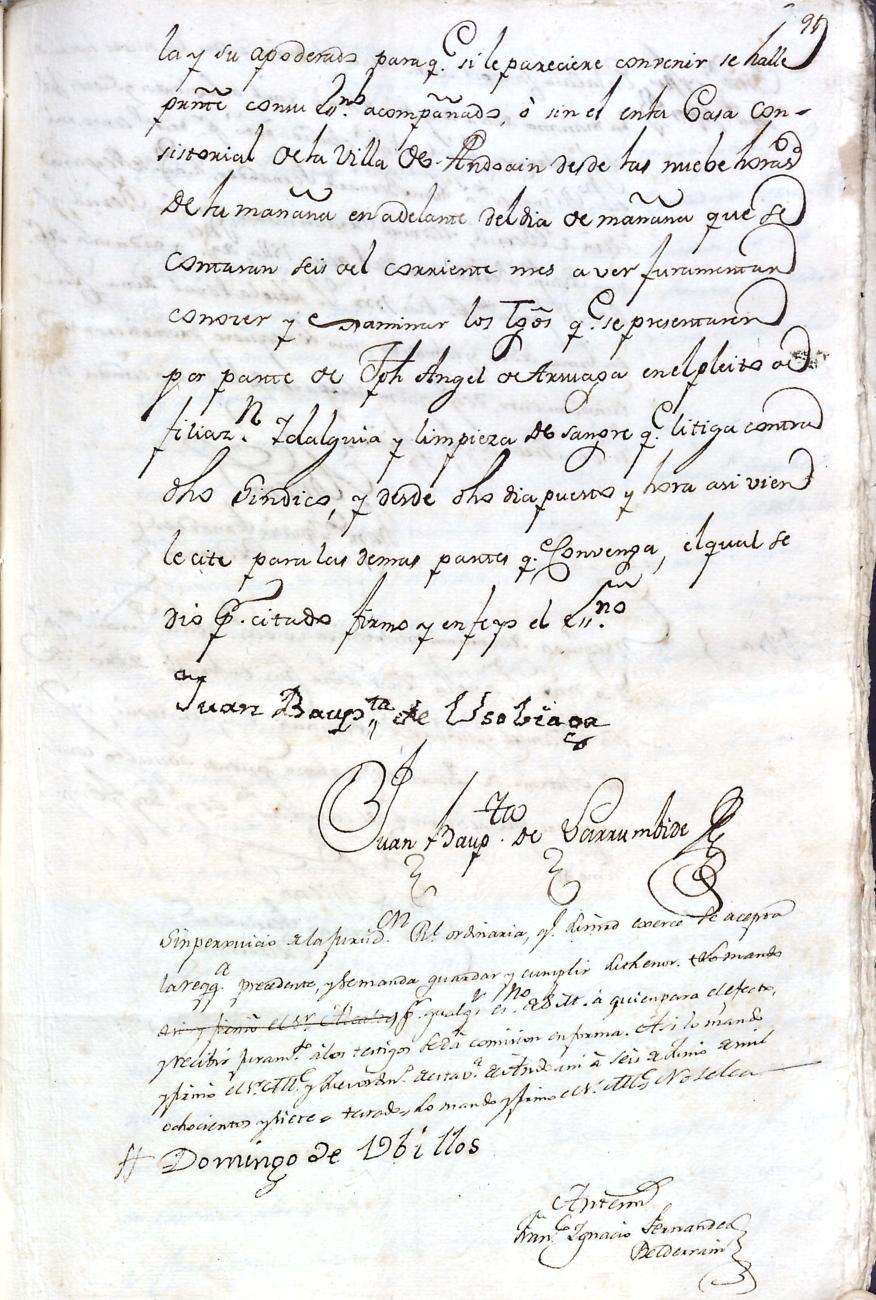 95
la y su apoderado para q.e si le pareciere convenir se halle
pres.te con su Ess.no acompañado, ò sin el en la Casa Con-
sistorial de la Villa de Andoain desde las nuebe horas
de la mañana en adelante del dia de mañana que se
contaran seis del corriente mes a ver juramentar
conocer y examinar los Tgōs q.e se presentaren
por parte de Jph Angel de Arruaga en el pleito de
filiaz.n Idalguia y limpieza de sangre q.e litiga contra
dho Sindico, y desde dho dia puesto y hora asi vien
le cite para las demas partes q.e Convenga, el qual se
dio p.r citado firmo y en fe yo el Ess.no
Juan Baup.ta de Usobiaga
Juan Baup.ta de Larrumbide
Sin perjuicio de la jurisd.on R.l ordinaria, q.e su mrd exerce se acepta
la req.a precedente, y se manda guardar y cumplir su thenor.
asi y firmó el S.r Alcalde p.r qualq.r es.no de S.M. à quien para el efecto,
y recibir juram.to à los testigos se dà comision en forma. Asi lo mandò
y firmò el S.r Alc.e y Juez ord.o de esta v.a de Andoain à seis de Junio de mil
ochocientos y siete = testado, lo mando y firmo el S.r Alc.e No valga
Domingo de Ubillos
Antemi
Fran.co Ignacio Fernandez
Belderrain